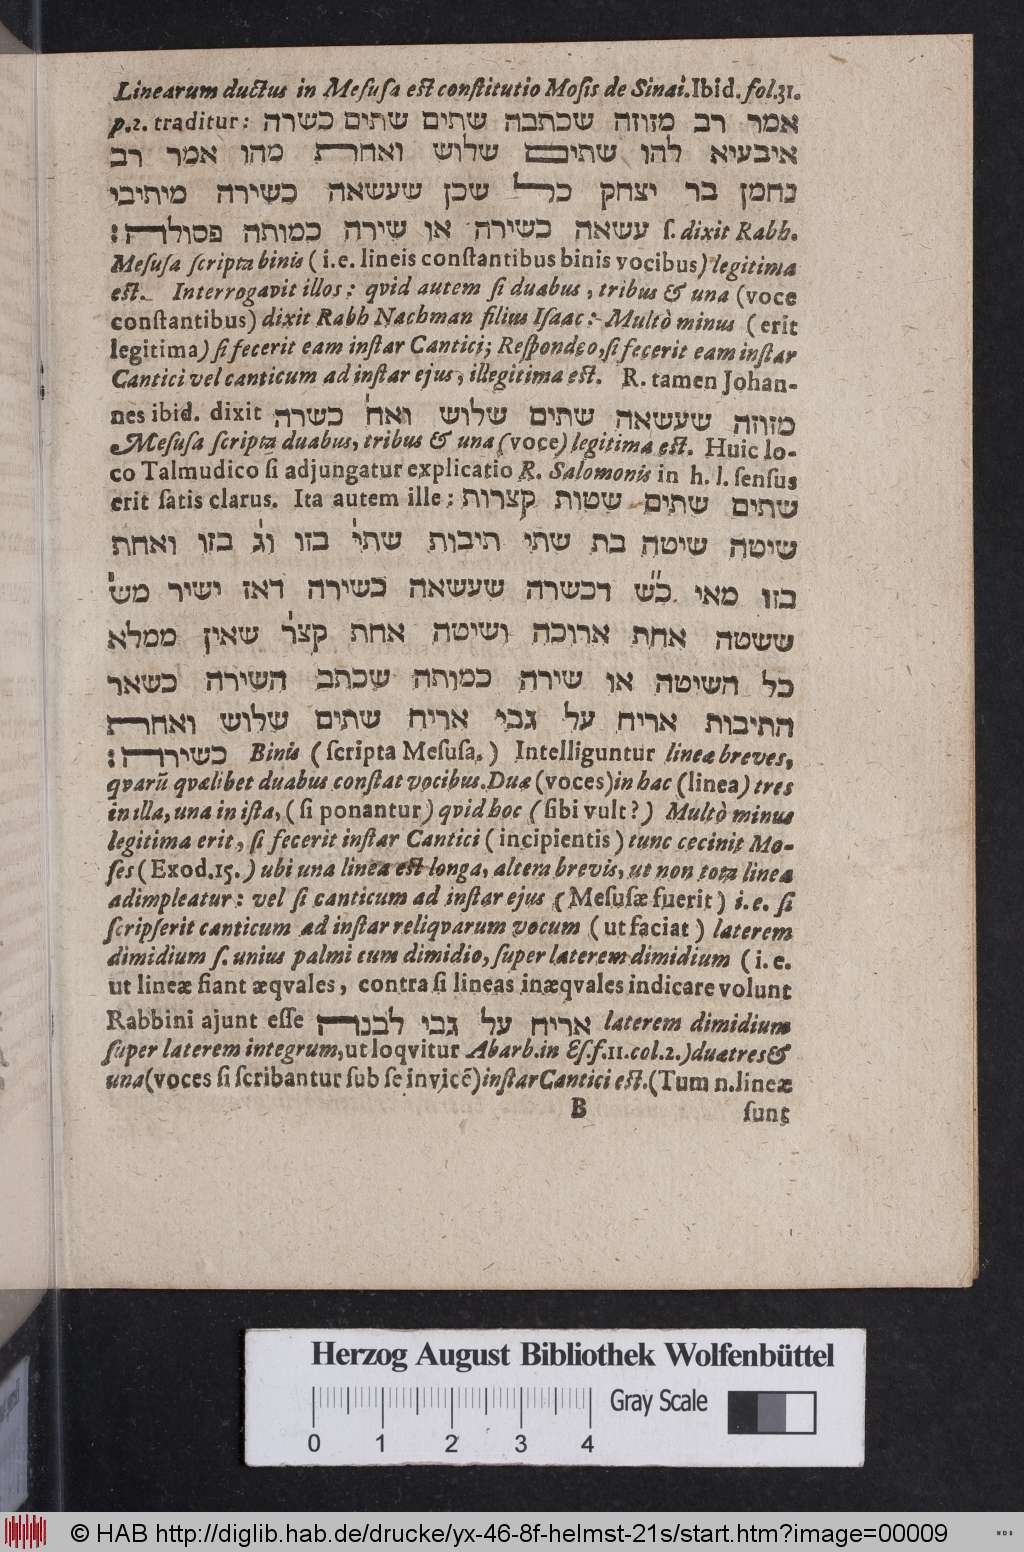 Linearum ductus in Mesusa est constitutio Mosis de Sinai. Ibid. fol.31.
p.2. traditur: אמר רב מזוזה שכתבה שתים שתים כשרה
איבעיא להו שתים שלוש ואחת מהו אמר רב
נחמן בר יצחק כל שכן שעשאה כשירה מיתיבי
עשאה כשירה או שירה כמותה פסולה: ſ. dixit Rabh.
Meſuſa ſcripta binis (i.e. lineis conſtantibus binis vocibus) legitima
eſt. Interrogavit illos: qvid autem ſi duabus, tribus & una (voce
conſtantibus) dixit Rabh Nachman filius Iſaac: Multò minus (erit
legitima) ſi fecerit eam inſtar Cantici; Reſpondeo, ſi fecerit eam inſtar
Cantici vel canticum ad inſtar ejus, illegitima eſt. R. tamen Johan-
nes ibid. dixit מזוזה שעשאה שתים שלוש ואח' כשרה
Meſuſa ſcripta duabus, tribus & una (voce) legitima eſt. Huic lo-
co Talmudico ſi adjungatur explicatio R. Salomonis in h. l. ſenſus
erit ſatis clarus. Ita autem ille: שתים שתים שטות קצרות
שיטה שיטה בת שתי תיבות שתי' בזו וג' בזו ואחת
בזו מאי כ"ש דכשרה שעשאה כשירה דאז ישיר מש'
ששטה אחת ארוכה ושיטה אחת קצר' שאין ממלא
כל השיטה או שירה כמותה שכתב השירה כשאר
התיבות אריח על גבי אריח שתים שלוש ואחת
כשירה: Binis (ſcripta Meſuſa.) Intelliguntur lineæ breves,
qvarũ qvælibet duabus conſtat vocibus. Duæ (voces) in hac (linea) tres
in illa, una in iſta, (ſi ponantur) qvid hoc (ſibi vult?) Multò minus
legitima erit, ſi fecerit inſtar Cantici (incipientis) tunc cecinit Mo-
ſes (Exod.15.) ubi una linea eſt longa, altera brevis, ut non tota linea
adimpleatur: vel ſi canticum ad inſtar ejus (Meſuſæ fuerit) i.e. ſi
ſcripſerit canticum ad inſtar reliqvarum vocum (ut faciat) laterem
dimidium ſ. unius palmi cum dimidio, ſuper laterem dimidium (i.e.
ut lineæ fiant æqvales, contra ſi lineas inæqvales indicare volunt
Rabbini ajunt eſſe אריח על גבי לבנה laterem dimidium
ſuper laterem integrum, ut loqvitur Abarb. in Eſ. f.11. col.2.) duæ tres &
una (voces ſi ſcribantur ſub ſe invicē) inſtar Cantici eſt. (Tum n. lineæ
B
ſunt
Herzog August Bibliothek Wolfenbüttel
Gray Scale
0 1 2 3 4
© HAB http://diglib.hab.de/drucke/yx-46-8f-helmst-21s/start.htm?image=00009